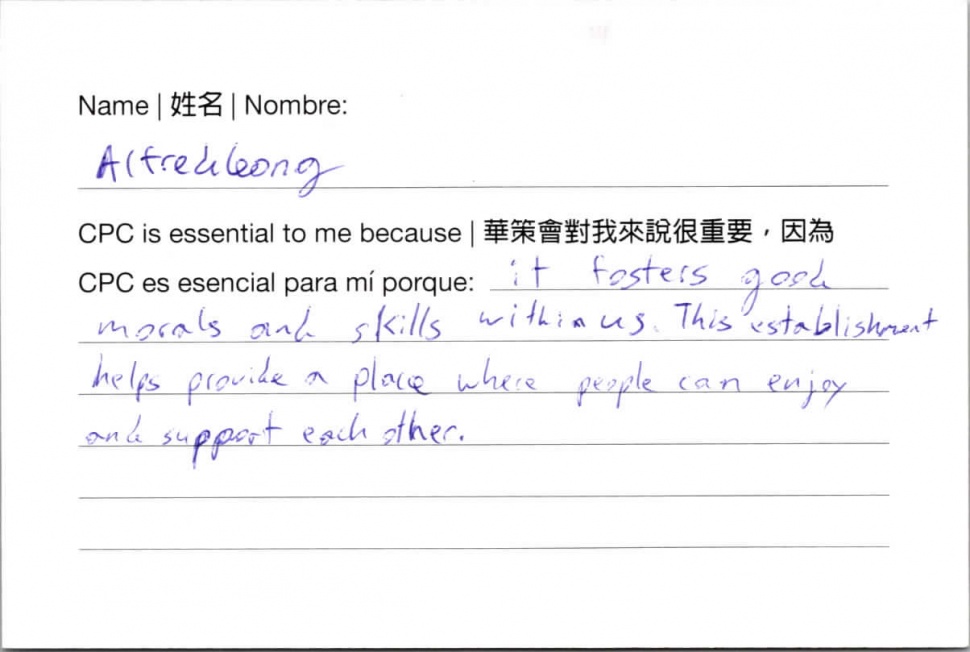 Name | 姓名 | Nombre:
Alfred Leong
CPC is essential to me because | 華策會對我來說很重要，因為
CPC es esencial para mí porque: it fosters good
morals and skills within us. This establishment
helps provide a place where people can enjoy
and support each other.